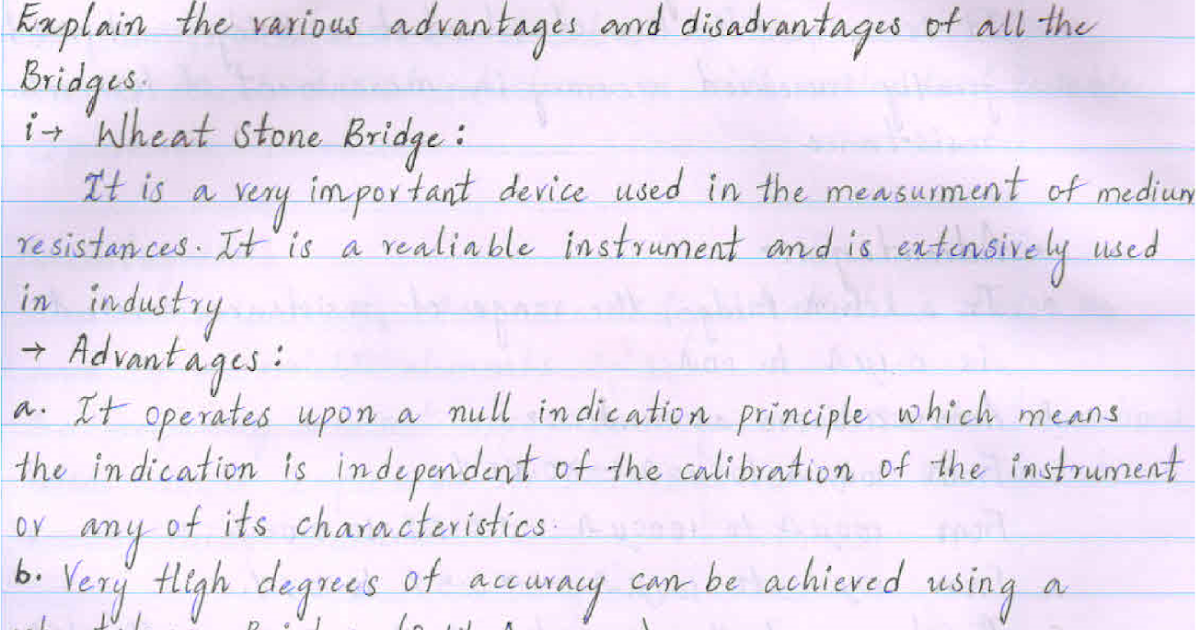 Explain the various advantages and disadvantages of all the
Bridges.
i→ Wheat Stone Bridge :
It is a very important device used in the measurment of medium
resistances. It is a realiable instrument and is extensively used
in industry
→ Advantages :
a. It operates upon a null indication principle which means
the indication is independent of the calibration of the instrument
or any of its characteristics.
b. Very High degrees of accuracy can be achieved using a